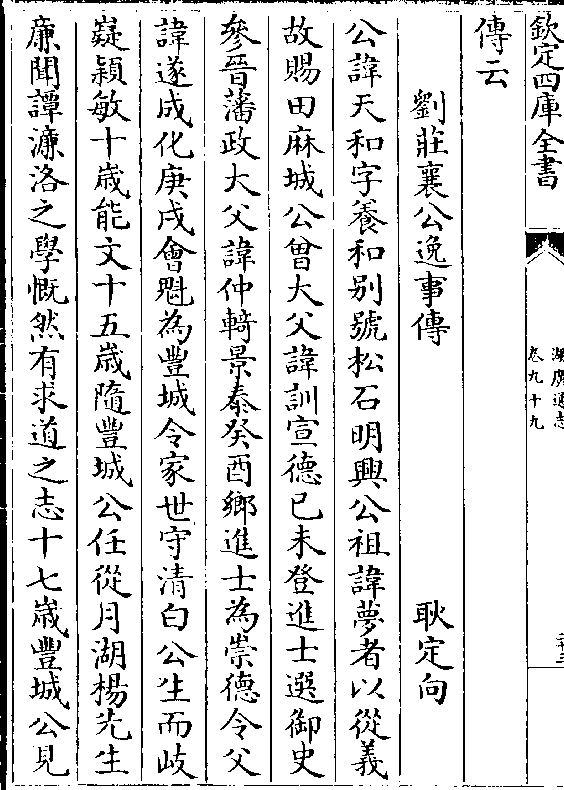 欽定四庫全書
湖廣通志
卷九十九
二十三
傳云
劉莊襄公逸事傳
耿定向
公諱天和字養和别號松石明興公祖諱夢者以從義
故賜田麻城公曾大父諱訓宣德已未登進士選御史
參晉藩政大父諱仲輢景泰癸酉鄉進士為崇德令父
諱遂成化庚戌會魁為豐城令家世守清白公生而岐
嶷穎敏十歲能文十五歲隨豐城公任從月湖楊先生
廉聞譚濂洛之學慨然有求道之志十七歲豐城公見